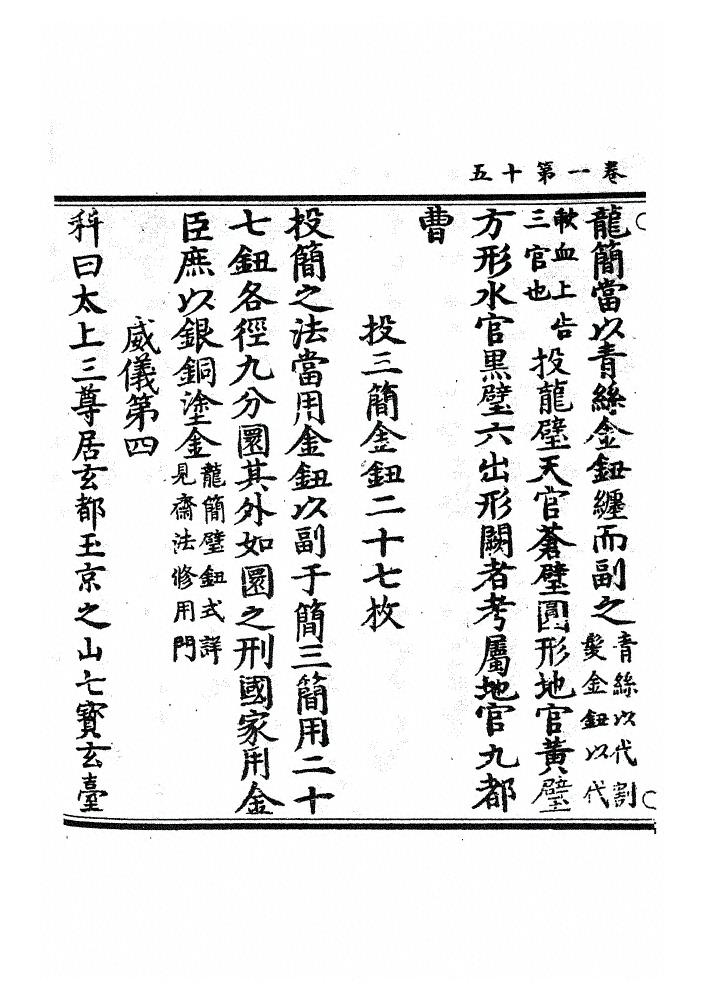 卷一第十五
龍簡當以青絲金鈕纏而副之青絲以代割髮金鈕以代
歃血上告三官也投龍璧天官蒼璧圓形地官黃璧
方形水官黑璧六出形闕者考屬地官九都
曹
投三簡金鈕二十七枚
投簡之法當用金鈕以副于簡三簡用二十
七鈕各徑九分圜其外如圜之刑國家用金
臣庶以銀銅塗金龍簡璧鈕式詳見齋法修用門
威儀第四
科曰太上三尊居玄都玉京之山七寳玄臺